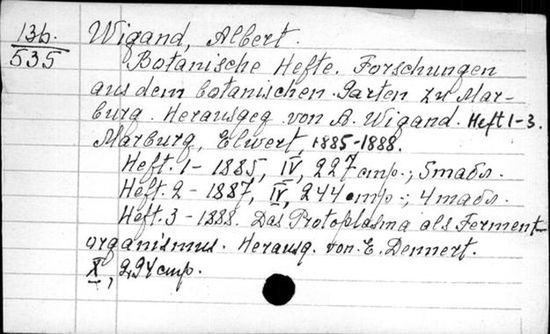 13b. Wigand, Albert.
535
Botanische Hefte. Forschungen
aus dem botanischen Garten zu Mar-
burg. Herausgeg. von A. Wigand. Heft 1-3.
Marburg, Elwert, 1885-1888.
Heft. 1 - 1885, IV, 227 стр.; 5 табл.
Heft. 2 - 1887, IV, 244 стр.; 4 табл.
Heft. 3 - 1888. Das Protoplasma als Ferment-
organismus. Herausg. von E. Dennert.
X, 294 стр.